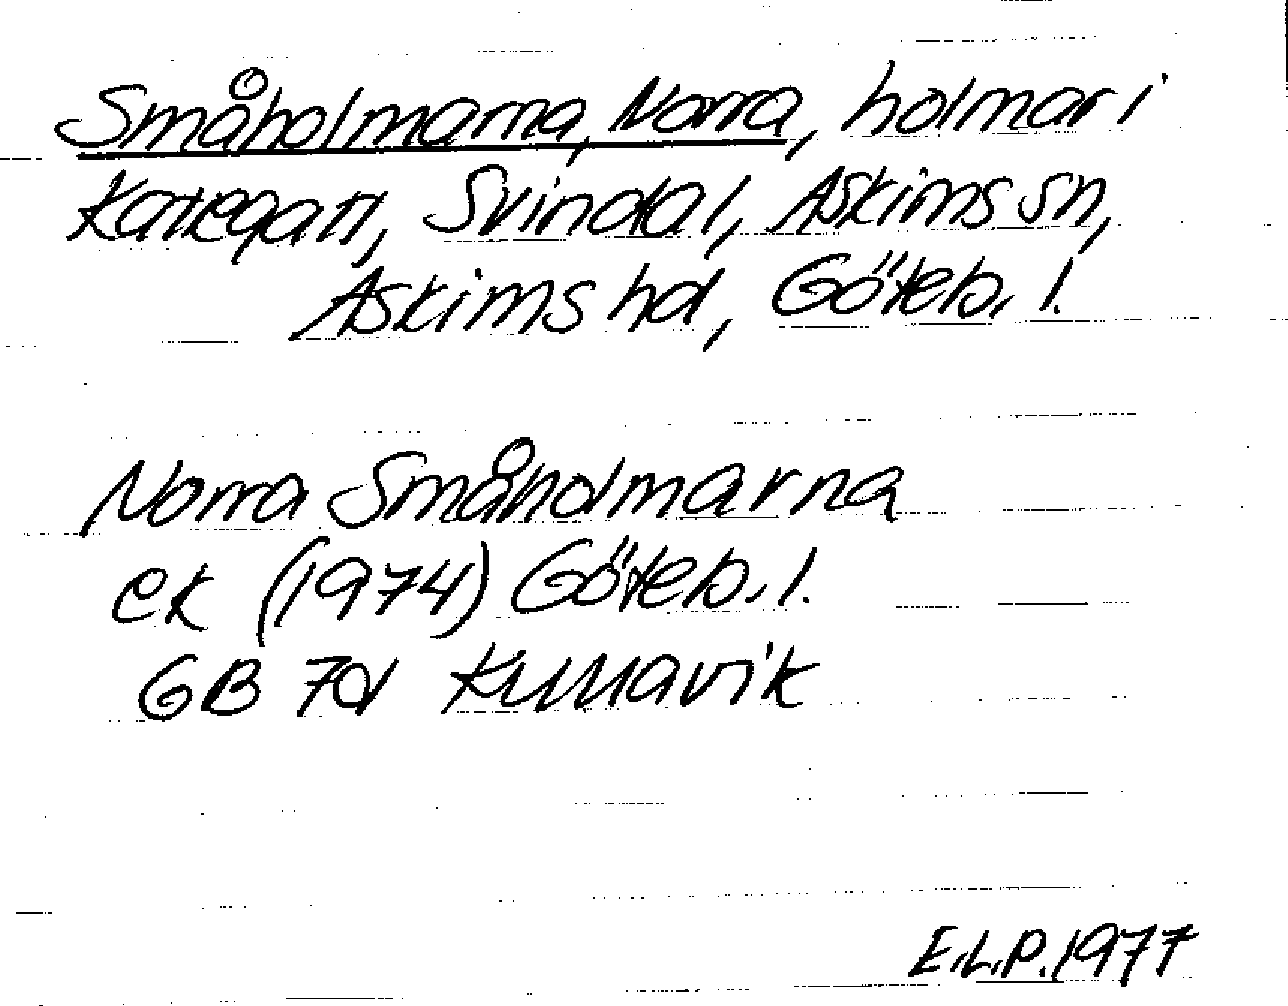 Småholmarna, Norra, holmar i
Kattegatt, Svindal, Askims sn,
Askims hd, Göteb. l.
Norra Småholmarna
ek (1974) Göteb. l.
GB 7d Kullavik
E.L.P. 1977